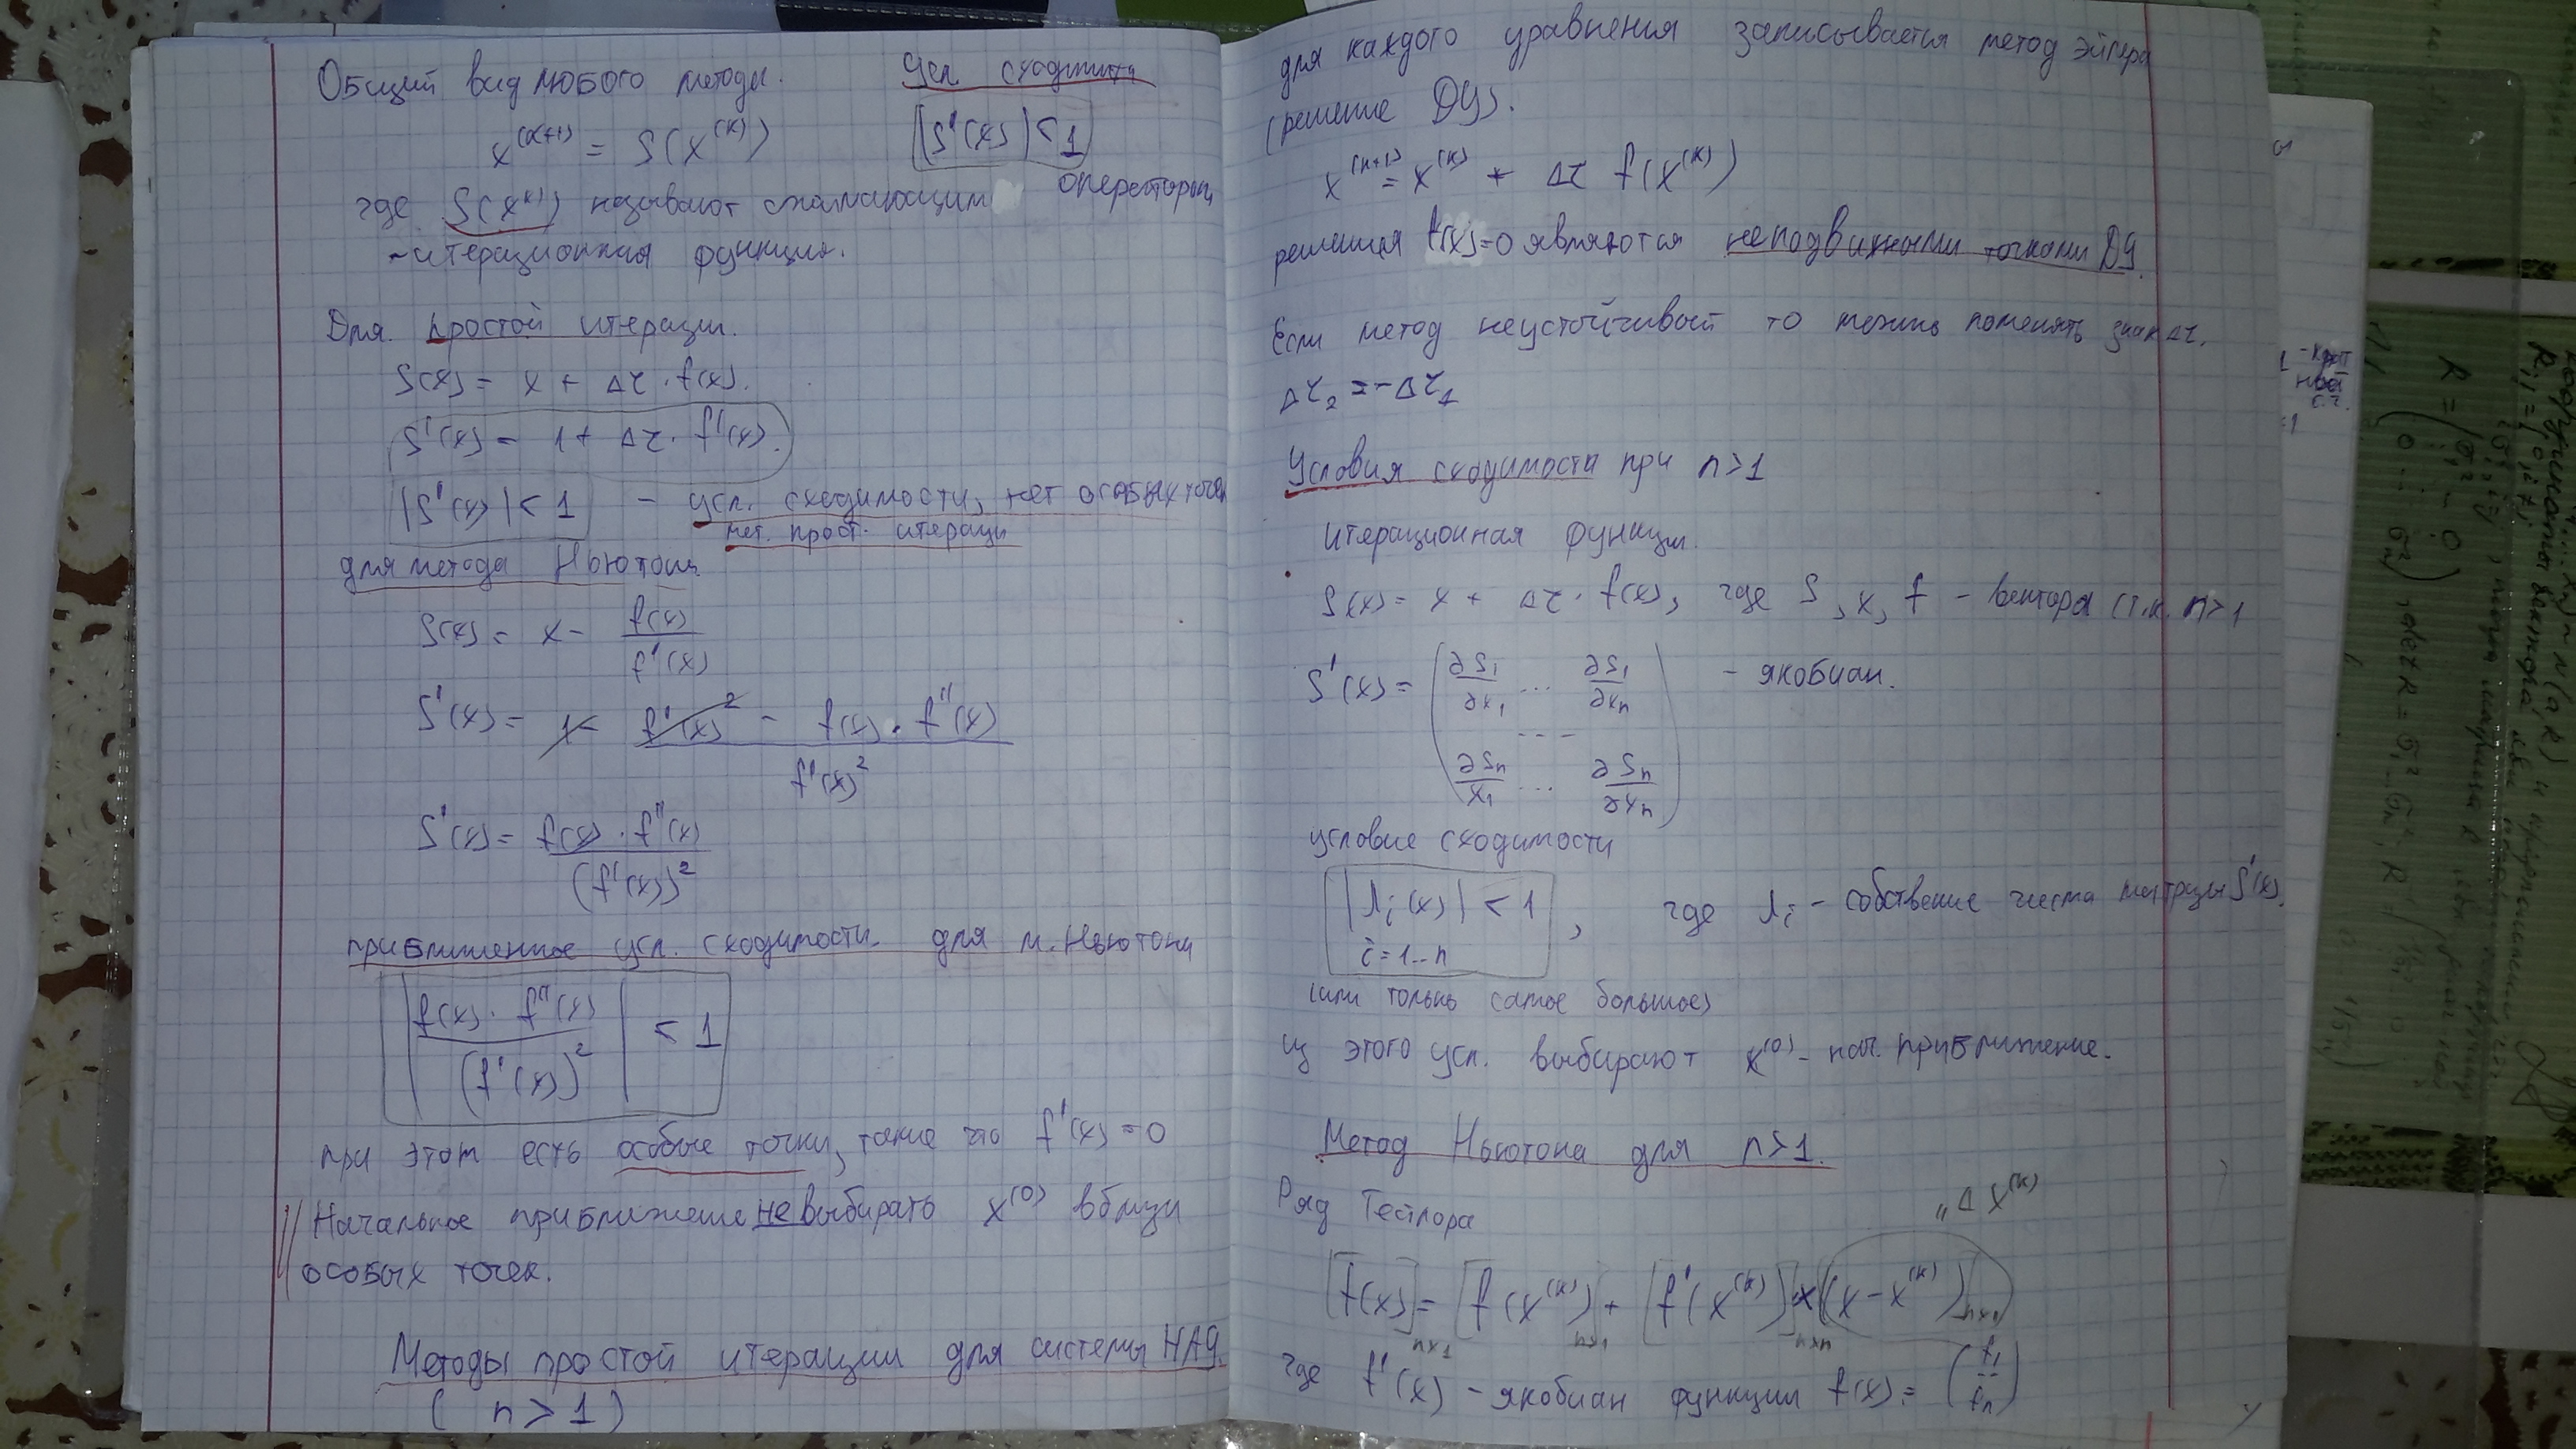 Общий вид любого метода.
Усл сходимости
x^(k+1) = S(x^(k))
|S'(x)| < 1
где S(x^(k)) называют сглаживающим оператором
~ итерационная функция.
Для простой итерации.
S(x) = x + Δτ · f(x).
S'(x) = 1 + Δτ · f'(x).
|S'(x)| < 1 – усл. сходимости, нет особых точек
мет. прост. итерации
для метода Ньютона
S(x) = x - f(x) / f'(x)
S'(x) = 1 - (f'(x)² - f(x) · f''(x)) / f'(x)²
S'(x) = f(x) · f''(x) / (f'(x))²
приближенное усл. сходимости для м. Ньютона
|f(x) · f''(x) / (f'(x))²| < 1
при этом есть особые точки, такие что f'(x) = 0
Начальное приближение не выбирать x^(0) вблизи
особых точек.
Методы простой итерации для системы НАУ
(n > 1)
для каждого уравнения записывается метод Эйлера
(решение ДУ).
x^(k+1) = x^(k) + Δτ f(x^(k))
решения f(x)=0 являются неподвижными точками ДУ
Если метод неустойчивый то менять знак Δτ,
Δτ₂ = -Δτ₁
Условия сходимости при n>1
Итерационная функция.
S(x) = x + Δτ · f(x), где S, x, f – вектора (т.к. n>1
S'(x) = (∂S₁/∂x₁ ... ∂S₁/∂xₙ
- - -
∂Sₙ/∂x₁ ... ∂Sₙ/∂xₙ) – якобиан.
условие сходимости
|λᵢ(x)| < 1, где λᵢ – собственные числа матрицы S'(x).
i = 1..n
(или только самое большое)
Из этого усл. выбирают x^(0) - нач. приближение.
Метод Ньютона для n>1.
Ряд Тейлора
Δx^(k)
"
f(x) = f(x^(k)) + f'(x^(k)) x (x - x^(k))
nx1 nx1 nxn nx1
где f'(x) – якобиан функции f(x) = (f₁ ... fₙ)